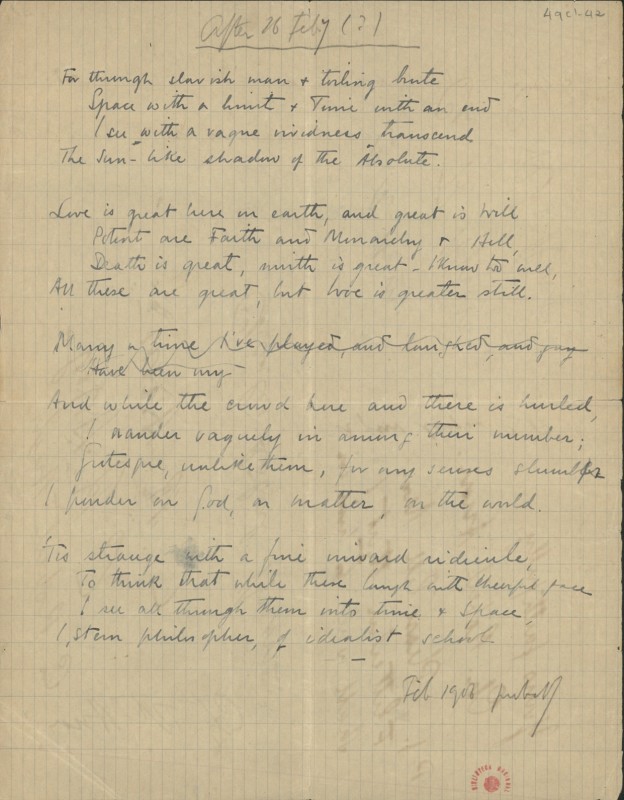 49A1-42
After 26 Feby (?)
For through slavish man & toiling brute
Space with a limit & Time with an end
I see with a vague vividness transcend
The Sun-like shadow of the Absolute.
Love is great here on earth, and great is Will
Potent are Faith and Monarchy & Hell,
Death is great, mirth is great – I know too well,
All these are great, but love is greater still.
Many a time I've played, and laughed, and gay
Have been my –
And while the crowd here and there is hurled,
I wander vaguely in among their number;
Grotesque, unlike them, for my senses slumber
I ponder on God, on matter, on the world.
'Tis strange with a fine inward ridicule,
To think that while these laugh with cheerful face
I see all through them into time & space,
I, stern philosopher, of idealist school
Feb 1906 probably
BIBLIOTECA NACIONAL